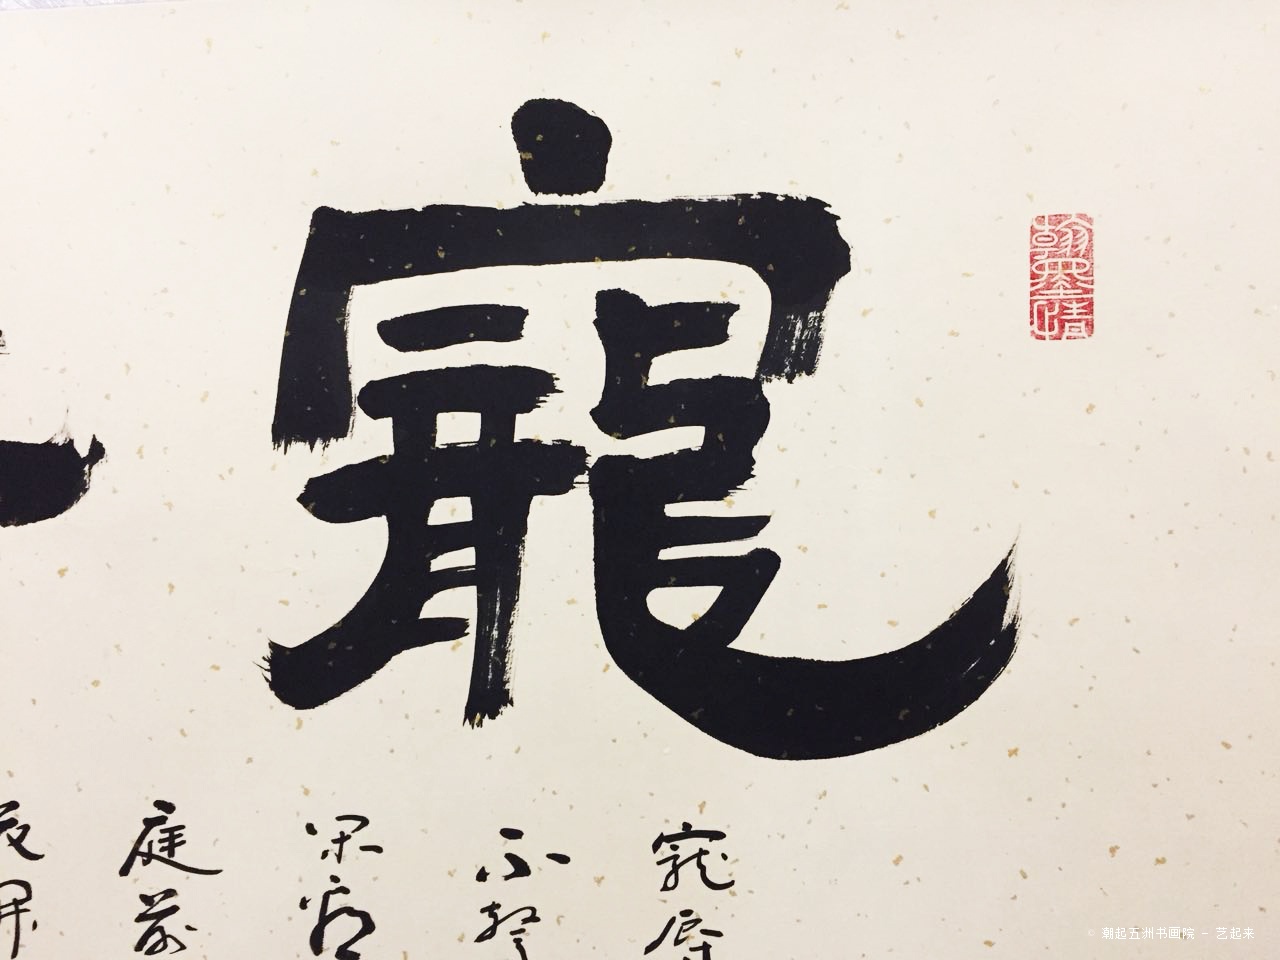 寵
翰墨情
寵辱
不驚
閑看
庭前
花開
© 朝起五洲书画院 - 艺起来